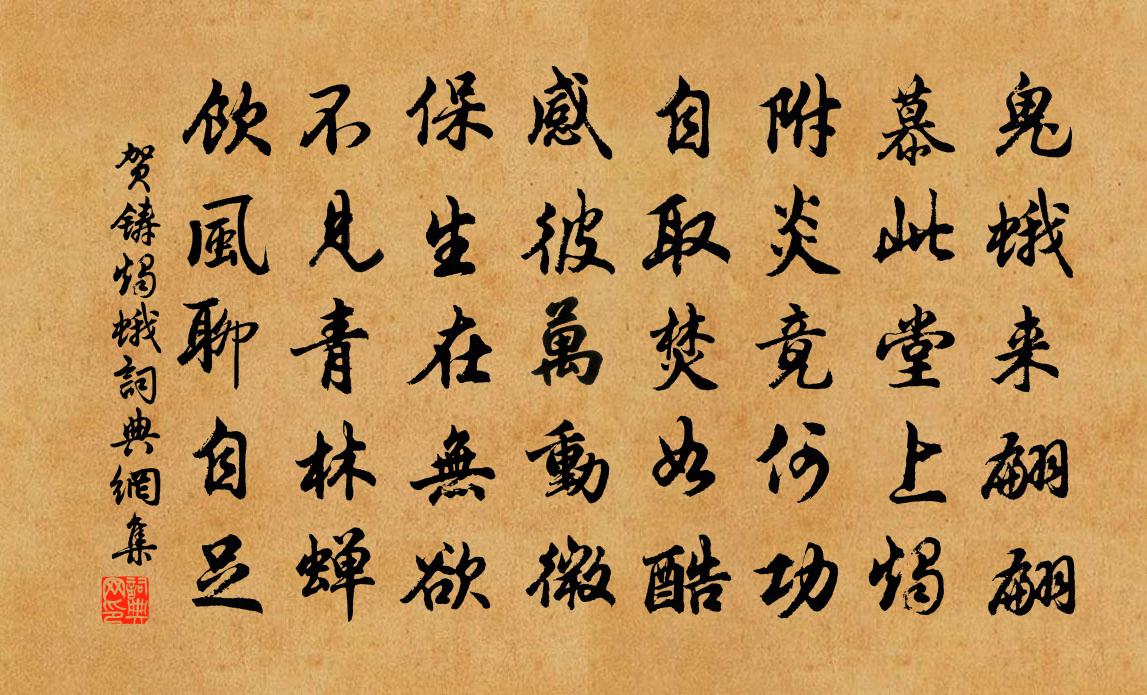 鬼蛾来翩翩
慕此堂上燭
附炎竟何功
自取焚如酷
感彼萬動微
保生在無欲
不見青林蝉
飲風聊自足
贺鑄燭蛾詞典網集
詞典网印